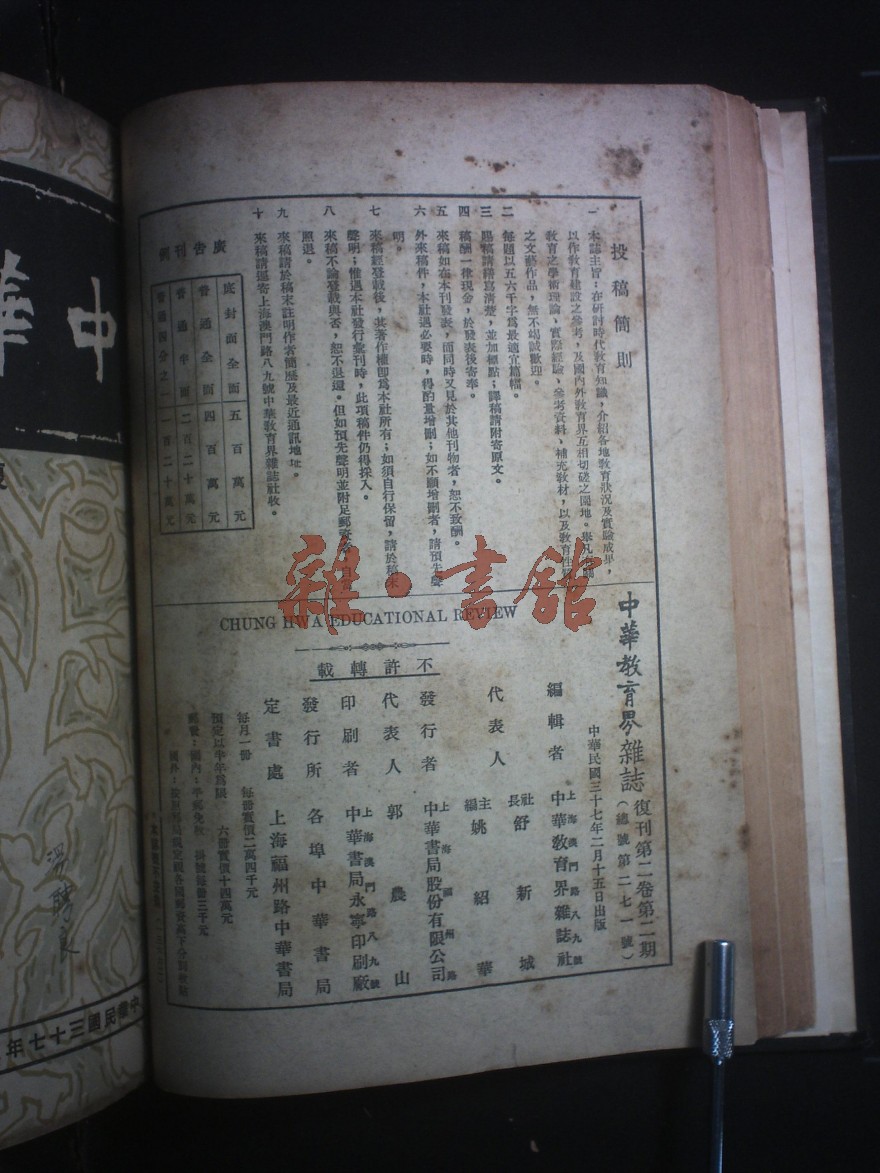 投稿簡則
一 本誌主旨：在研討時代教育知識，介紹各地教育狀況及實驗成果，
以作教育建設之參考，及國內外教育界互相切磋之園地。舉凡
教育之學術理論，實際經驗，參考資料，補充教材，以及教育性
之文藝作品，無不竭誠歡迎。
二 每題以五六千字爲最適宜篇幅。
三 賜稿請繕寫清楚，並加標點；譯稿請附寄原文。
四 稿酬一律現金，於發表後寄奉。
五 來稿如在本刊發表，而同時又見於其他刊物者，恕不致酬。
六 外來稿件，本社遇必要時，得酌量增刪；如不願增刪者，請預先聲
明。
七 來稿經登載後，其著作權卽爲本社所有；如須自行保留，請於稿末
聲明；惟遇本社發行彙刊時，此項稿件仍得採入。
八 來稿不論登載與否，恕不退還。但如預先聲明並附足郵資者，
照退。
九 來稿請於稿末註明作者簡歷及最近通訊地址。
十 來稿請逕寄上海澳門路八九號中華教育界雜誌社收。
廣告刊例
底封面全面 五百萬元
普通全面 四百萬元
普通半面 二百二十萬元
普通四分之一 一百二十萬元
中華教育界雜誌 復刊第二卷第二期
（總號第二七一號）
中華民國三十七年二月十五日出版
編輯者 上海澳門路八九號 中華教育界雜誌社
代表人 社長 舒新城
主編 姚紹華
發行者 上海福州路 中華書局股份有限公司
代表人 郭農山
印刷者 上海澳門路八九號 中華書局永寧印刷廠
發行所 各埠中華書局
定書處 上海福州路中華書局
不許轉載
CHUNG HWA EDUCATIONAL REVIEW
每月一冊 每冊實價二萬四千元
預定以半年爲限 六冊實價十四萬元
郵費：國內：平郵免收 掛號每冊三千元
雜·書館
中華
中華民國三十七年